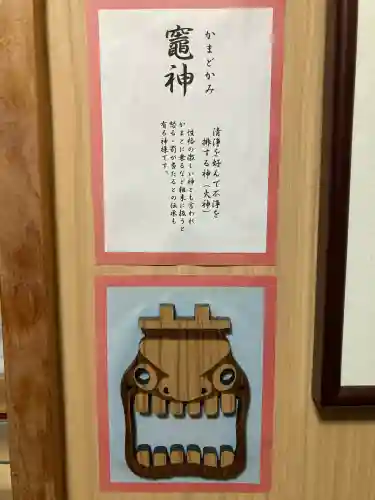 かまどかみ
竈神
清浄を好んで不浄を
排する神(火神)
性格の激しい神とも言われ
かまどに乗るなど粗末に扱うと
怒る・罰が当たるとの伝承も
有る神様です。